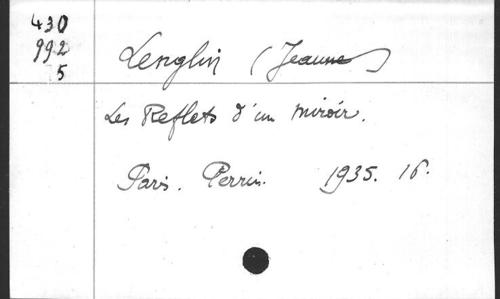 430
992
5
Lenglin (Jeanne)
Les Reflets d'un miroir.
Paris. Perrin. 1935. 16.